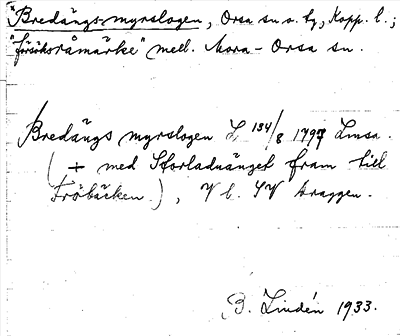 "Bredängs-myrslogen, Orsa sn o. tg, Kopp. l.;
"försöksråmärke" mell. Mora - Orsa sn.
Bredängs myrslogen L 134/8 1797 Lmsa.
(+ med Storladuänget fram till
Fröbäcken.), V l. SV
B. Lindén 1933.